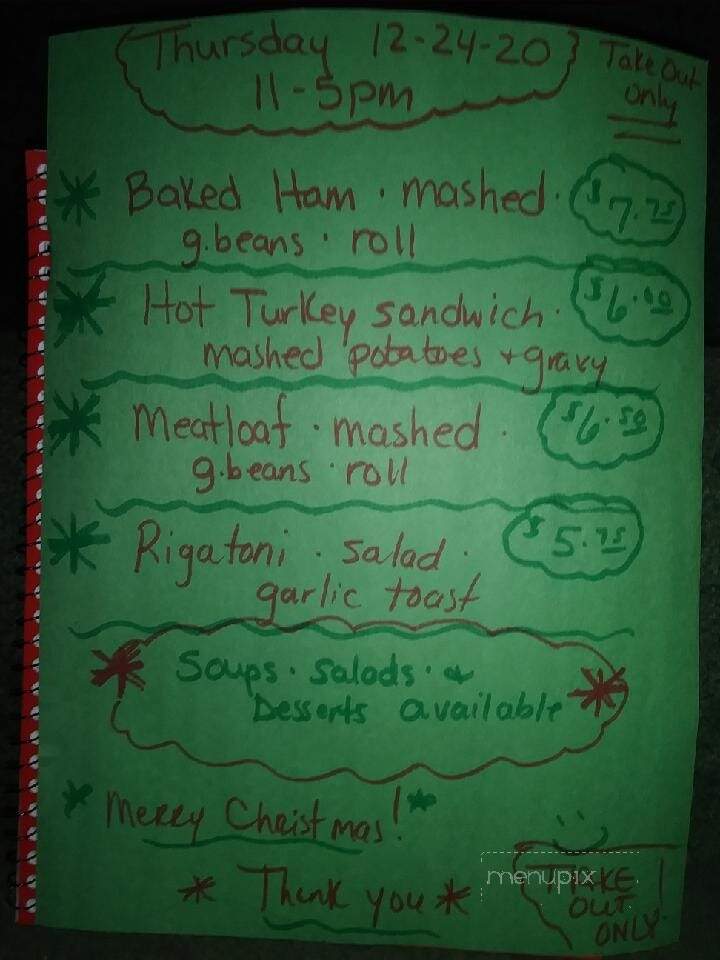 Thursday 12-24-20
11-5pm
Take Out
Only
Baked Ham · mashed · $7.75
g.beans · roll
Hot Turkey sandwich · $6.
mashed potatoes + gravy
Meatloaf · mashed · $6.50
g.beans · roll
Rigatoni · salad · $5.75
garlic toast
Soups · Salads · &
Desserts available
Merry Christmas!
Thank you
TAKE
OUT
ONLY
menupix